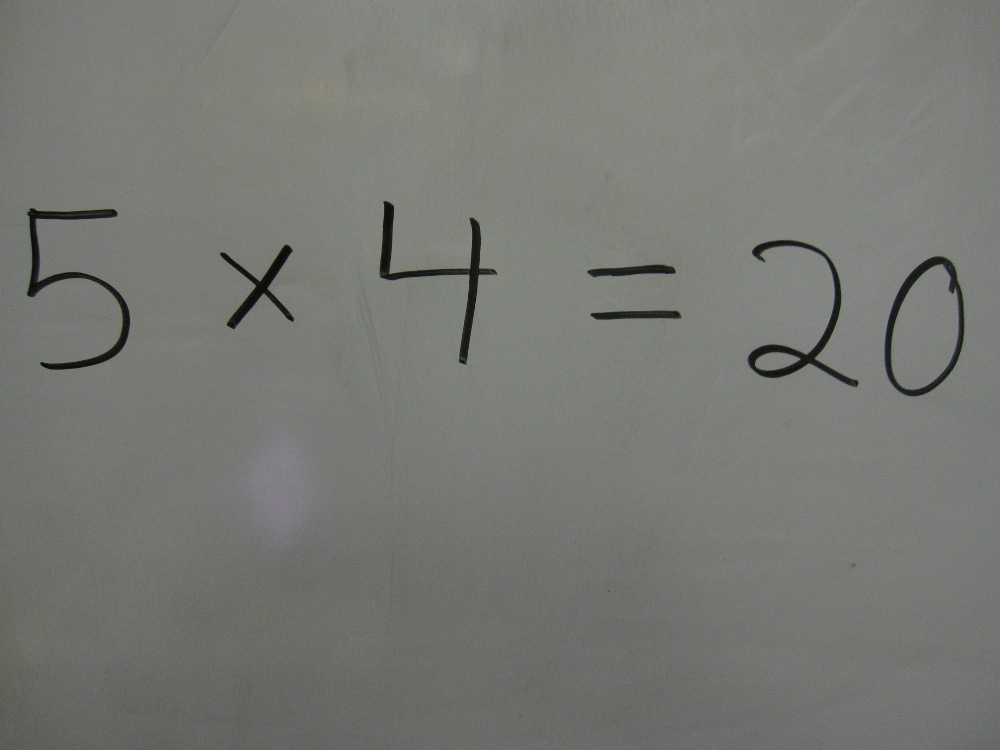 5 × 4 = 20